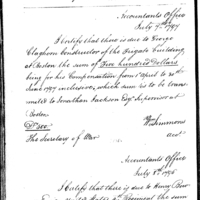 Accountants Office
July 7th 1797
I Certify that there is due to George
Claghorn Constructor of the Frigate building
at Boston the sum of Five hundred Dollars
being for his Compensation from 1st April to 30th
June 1797 inclusive, which sum is to be trans-
mitted to Jonathan Jackson Esqr Supervisor at
Boston
Ds 500
Wm Simmons
The Secretary of War
acct
Accountants Office
July 8th
I Certify that there is due to Henry
the sum